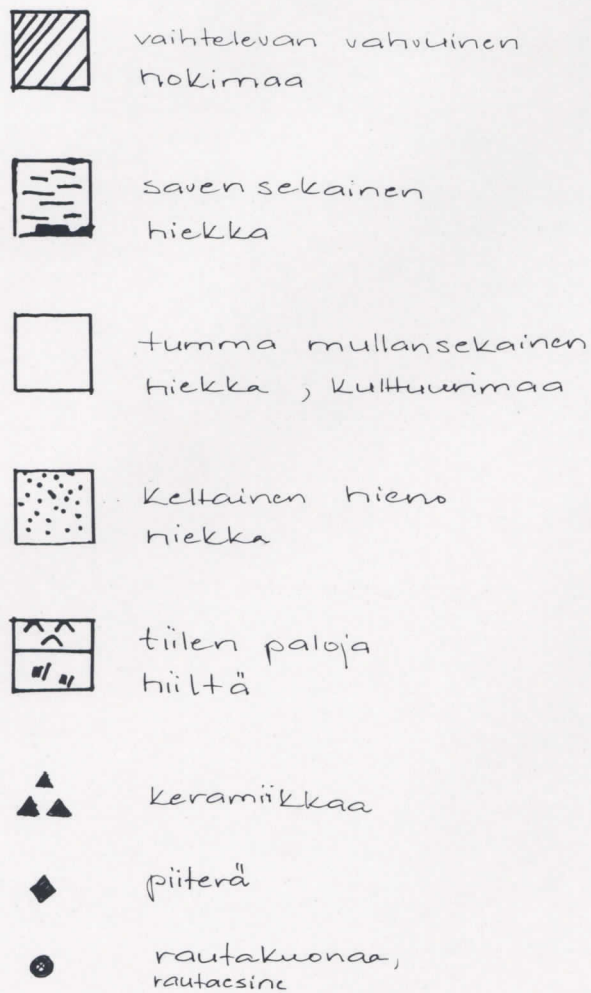 vaihtelevan vahvuinen
nokimaa
saven sekainen
hiekka
tumma mullansekainen
hiekka, kulttuurimaa
keltainen hieno
hiekka
tiilen paloja
hiiltä
keramiikkaa
piiterä
rautakuonaa,
rautaesine